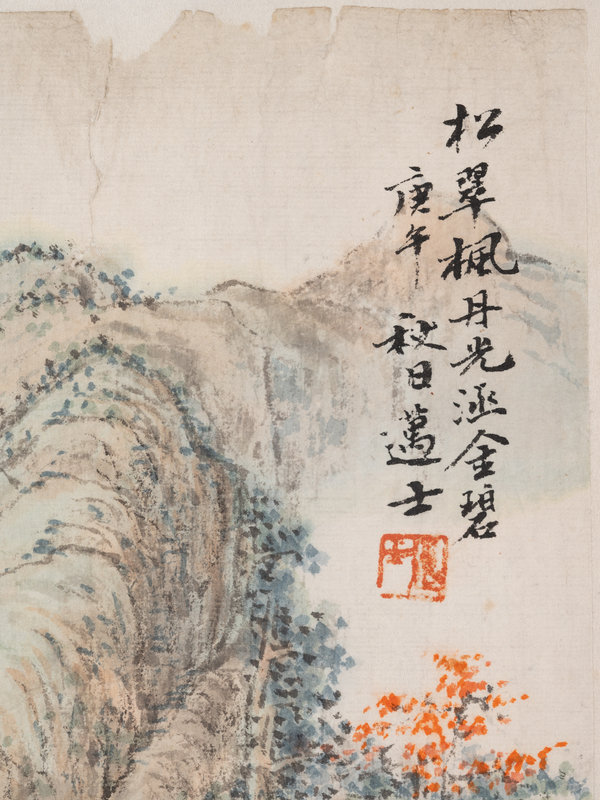 松翠楓丹光涵金碧
庚午秋日邁士